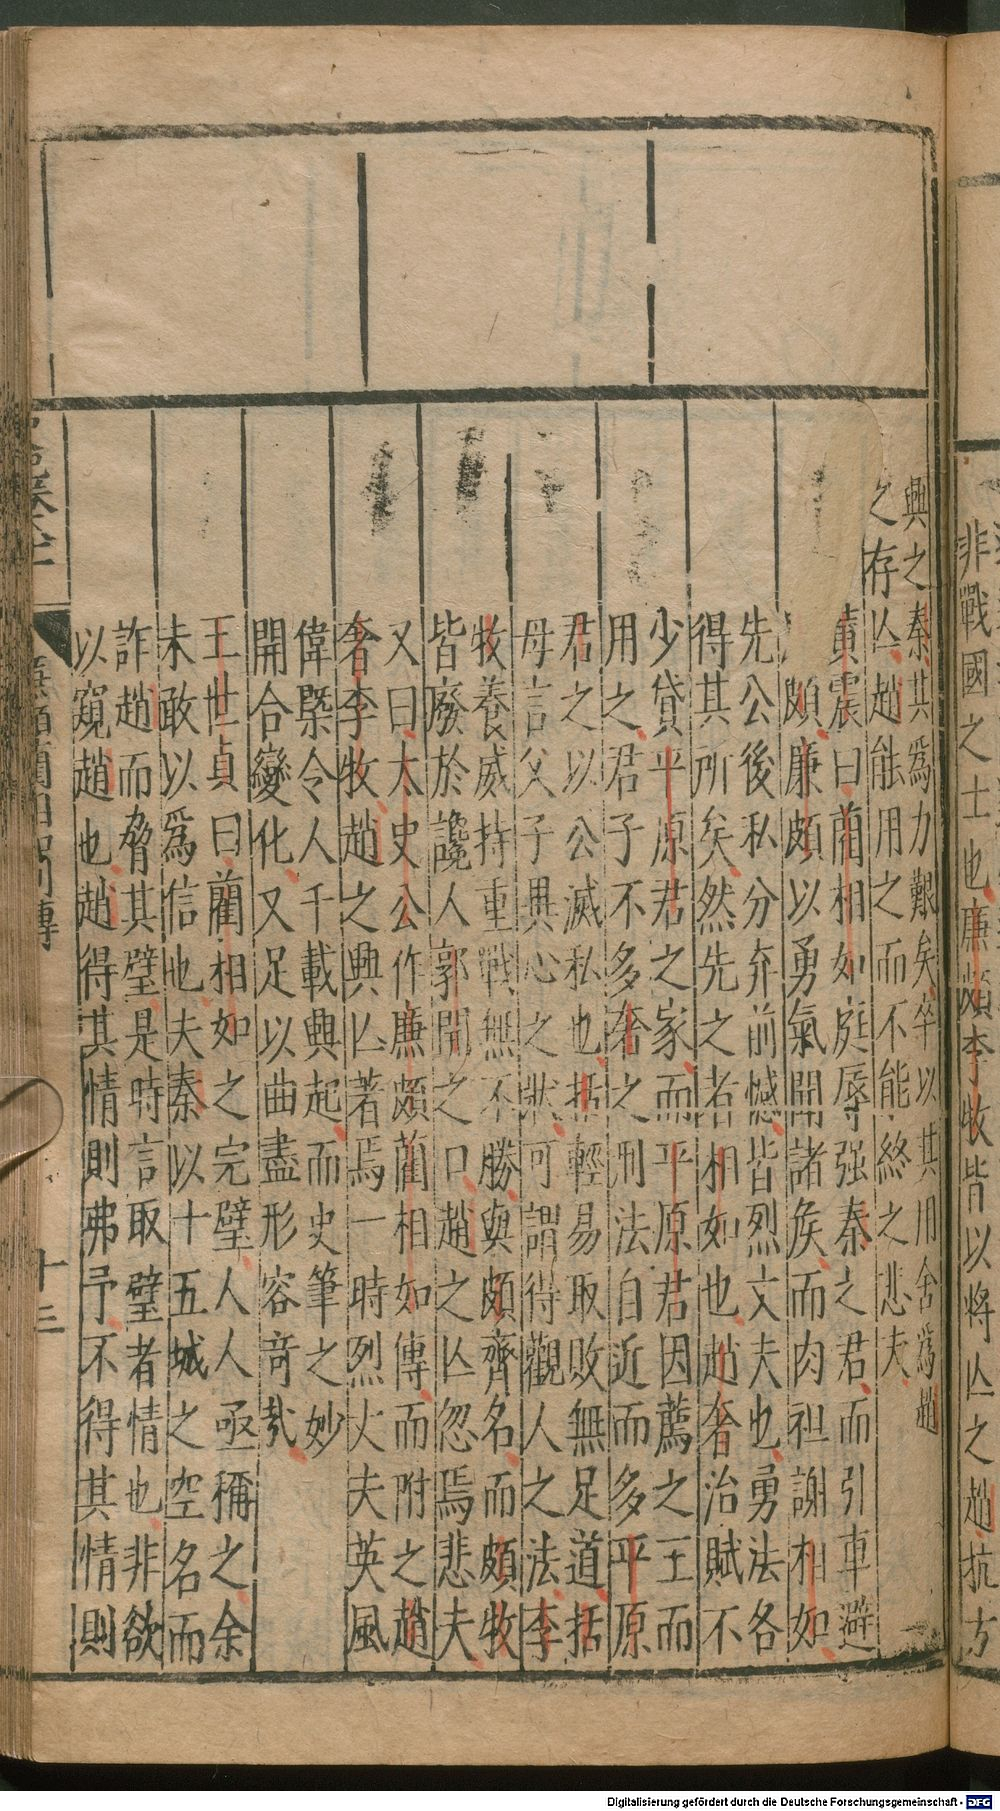 非戰國之士也廉頗李牧皆以將亾之趙抗方
興之秦其爲力艱矣卒以其用舍爲趙
之存亾趙能用之而不能終之悲夫
黄震曰藺相如庭辱强秦之君而引車避
頗廉頗以勇氣聞諸侯而肉袒謝相如
先公後私分弃前憾皆烈丈夫也勇法各
得其所矣然先之者相如也趙奢治賦不
少貸平原君之家而平原君因薦之王而
用之君子不多奢之刑法自近而多平原
君之以公滅私也括輕易取敗無足道括
母言父子異心之狀可謂得觀人之法李
牧養威持重戰無不勝與頗齊名而頗牧
皆廢於讒人郭開之口趙之亾忽焉悲夫
又曰太史公作廉頗藺相如傳而附之趙
奢李牧趙之興亾著焉一時烈丈夫英風
偉槩令人千載興起而史筆之妙
開合變化又足以曲盡形容竒哉
王世貞曰藺相如之完璧人人亟稱之余
未敢以爲信也夫秦以十五城之空名而
詐趙而脅其璧是時言取璧者情也非欲
以窺趙也趙得其情則弗予不得其情則
廉頗藺相如列傳
十三
Digitalisierung gefördert durch die Deutsche Forschungsgemeinschaft - DFG